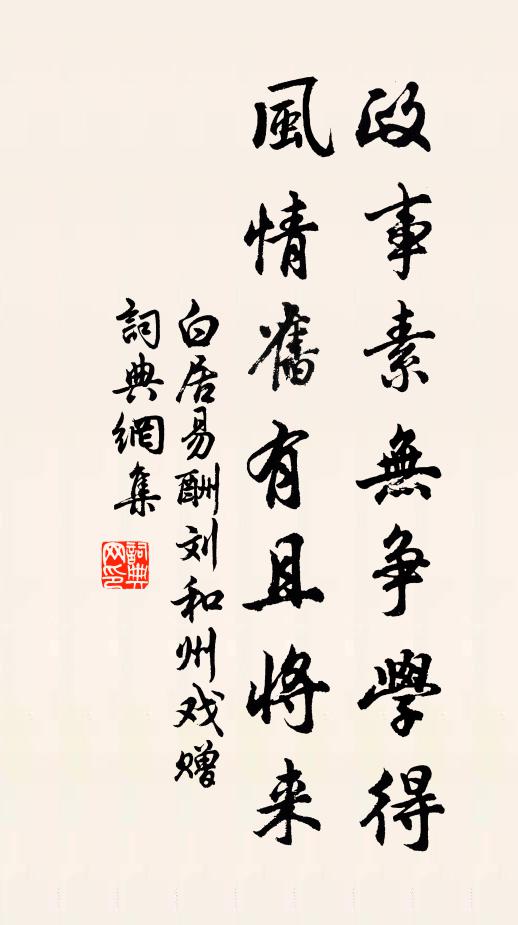 政事素無争學得
風情舊有且將来
白居易酬刘和州戏赠
詞典網集
詞典
网印